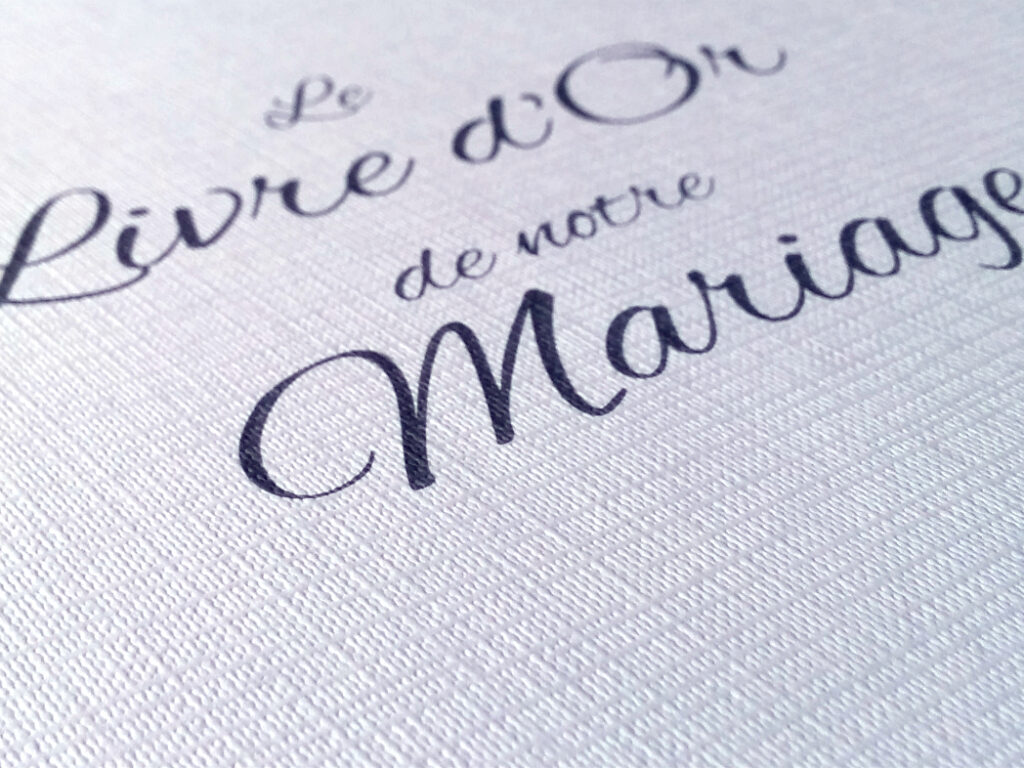 Le
Livre d'Or
de notre
Mariage